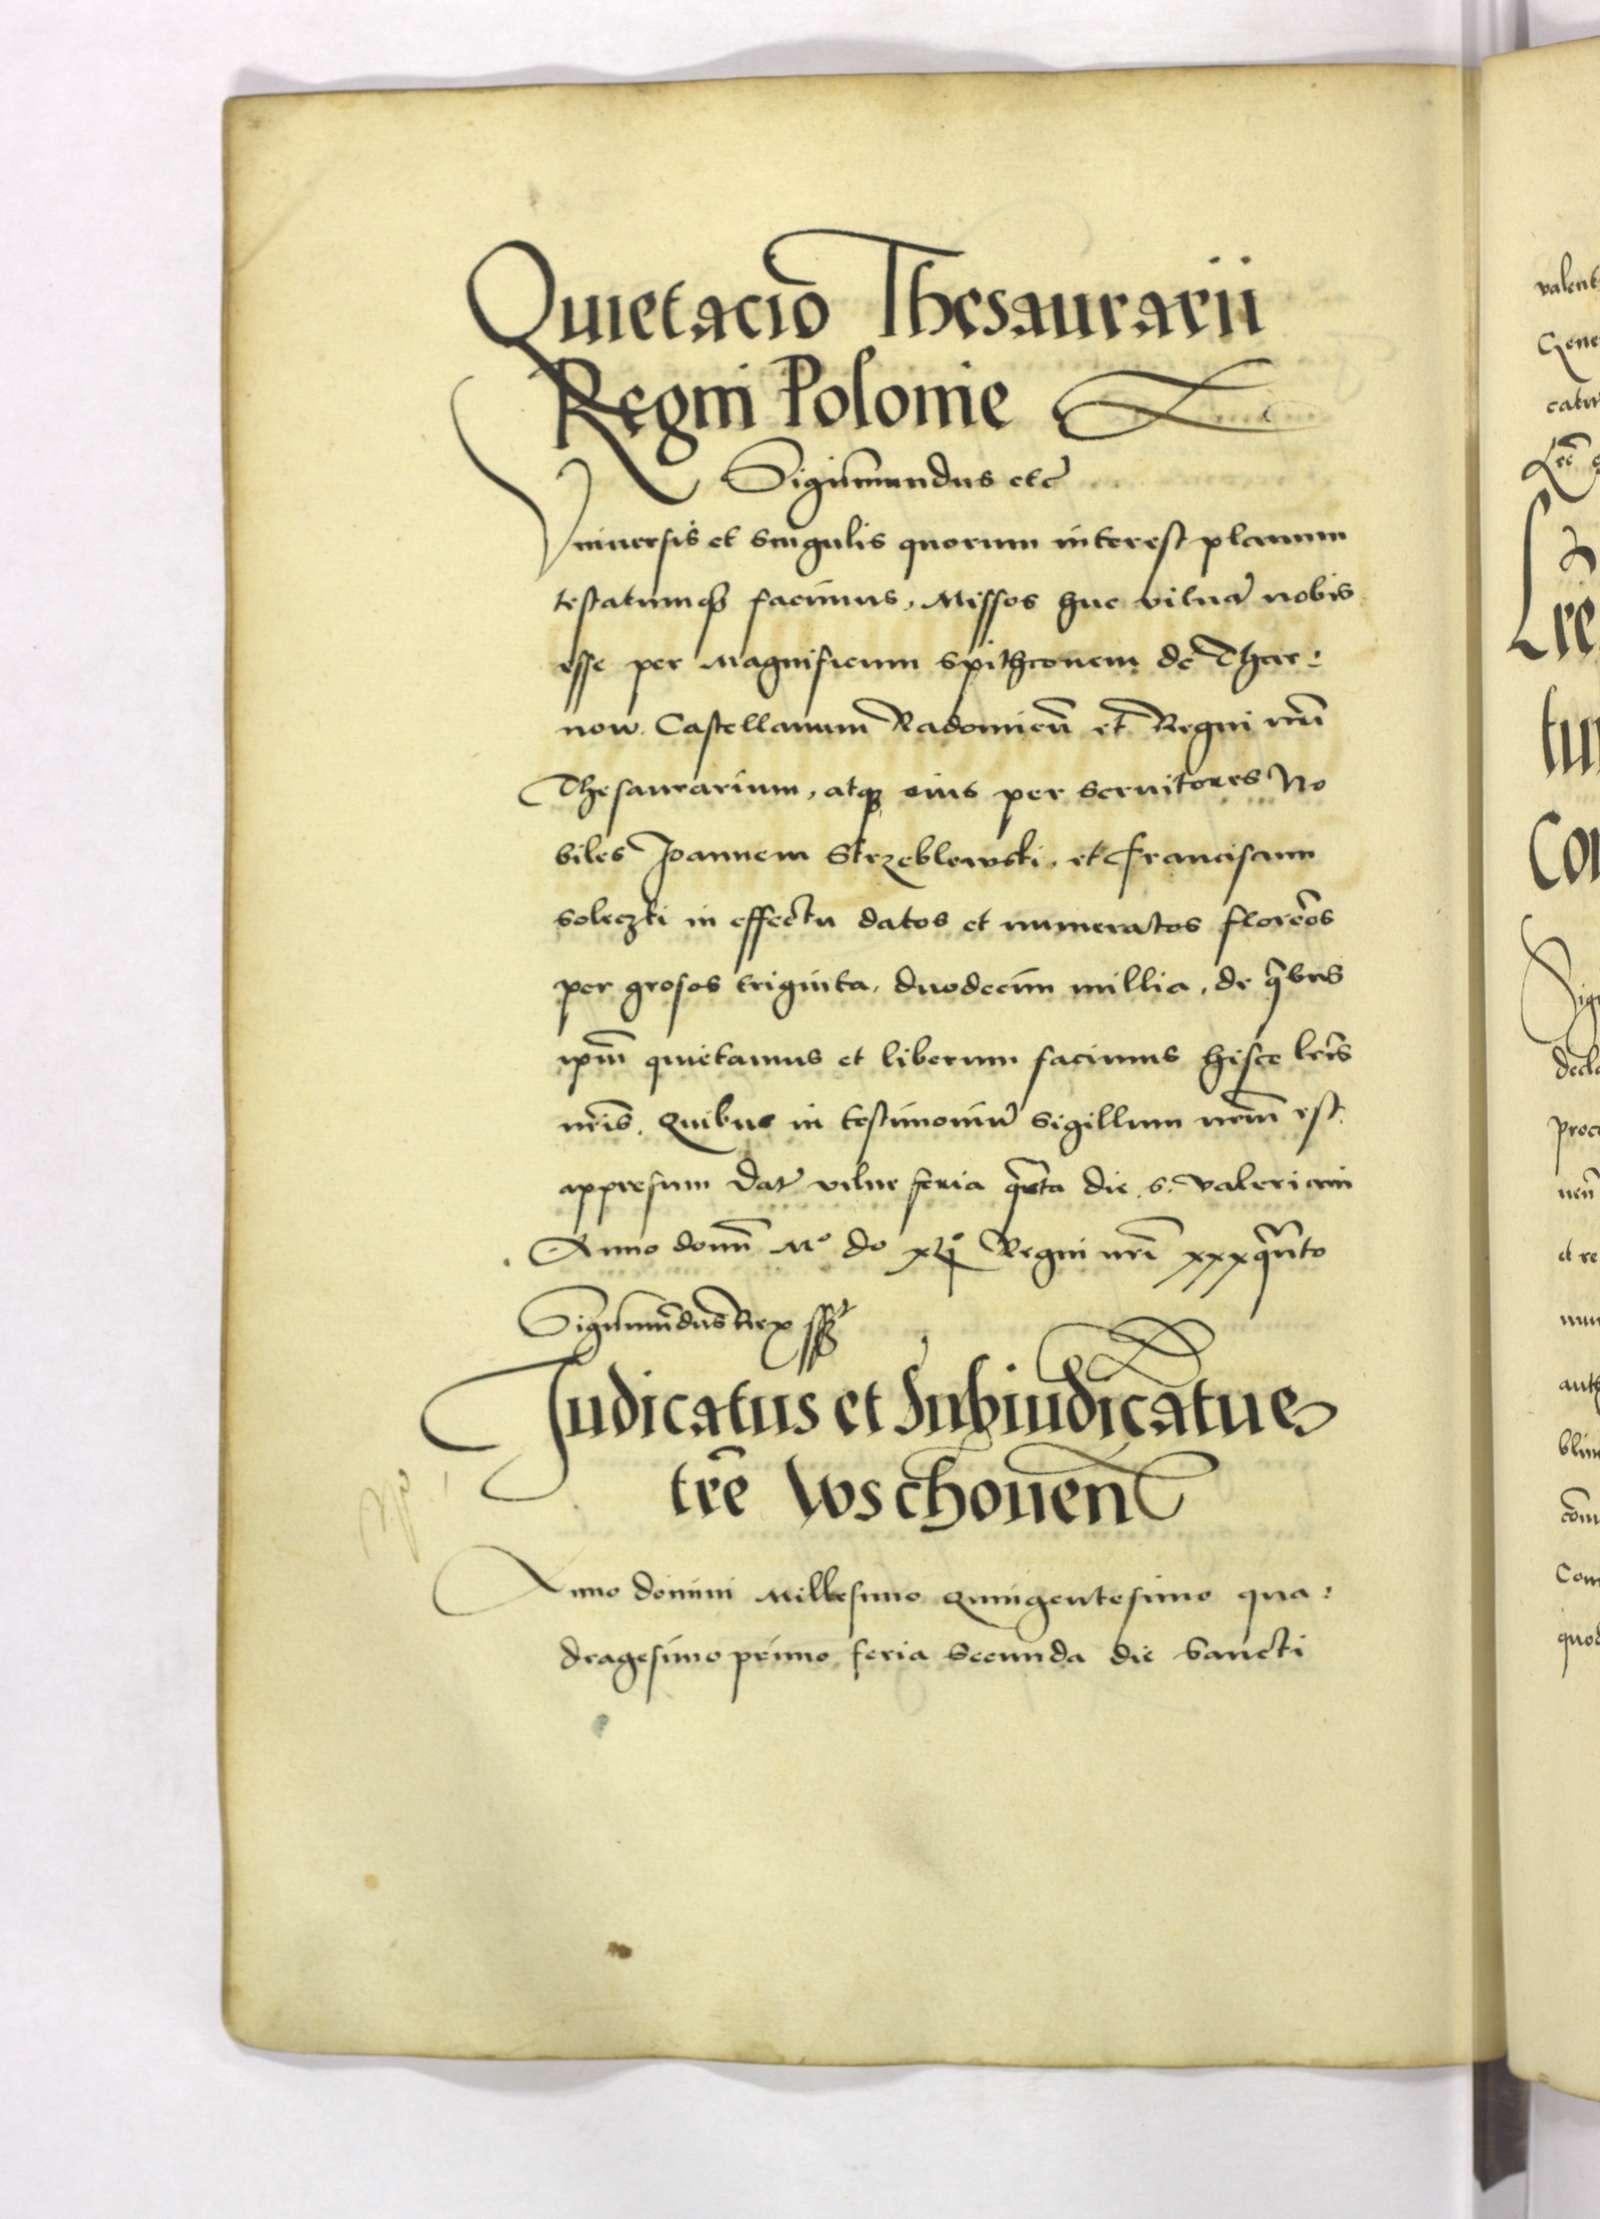 Quietacio Thesaurarii
Regni Polonie
Sigismundus etc
Vniuersis et singulis quorum interest planum
testatumq facimus, Missos huc vilnā nobis
esse per Magnificum Spithconem de Thar:
now Castellanum Radomieñ et Regni nrū
Thesaurarium, atq eius per seruitores No
biles Joannem Strzeblewski et Franciscum
soleczki in effectu datos et numeratos florēos
per grosos triginta, duodecim millia, de qbus
ipm̄ quietamus et liberum facimus hisce lrīs
nrīs. Quibus in testimoniū Sigillum nrm̄ est
appresum Dat vilne feria qrta die s. Valeriani
Anno domī Mº do xljº Regni nrī xxxqnto
Sigismūdus Rex sst
Judicatus et Subiudicatus
trē wschoueñ
Anno domini Millesimo Quingentesimo qua:
dragesimo primo feria Secunda die Sancti
valent
Gene
catur
Lrē
tur
Con
Sig
decla
proc
et re
auth
com
quod